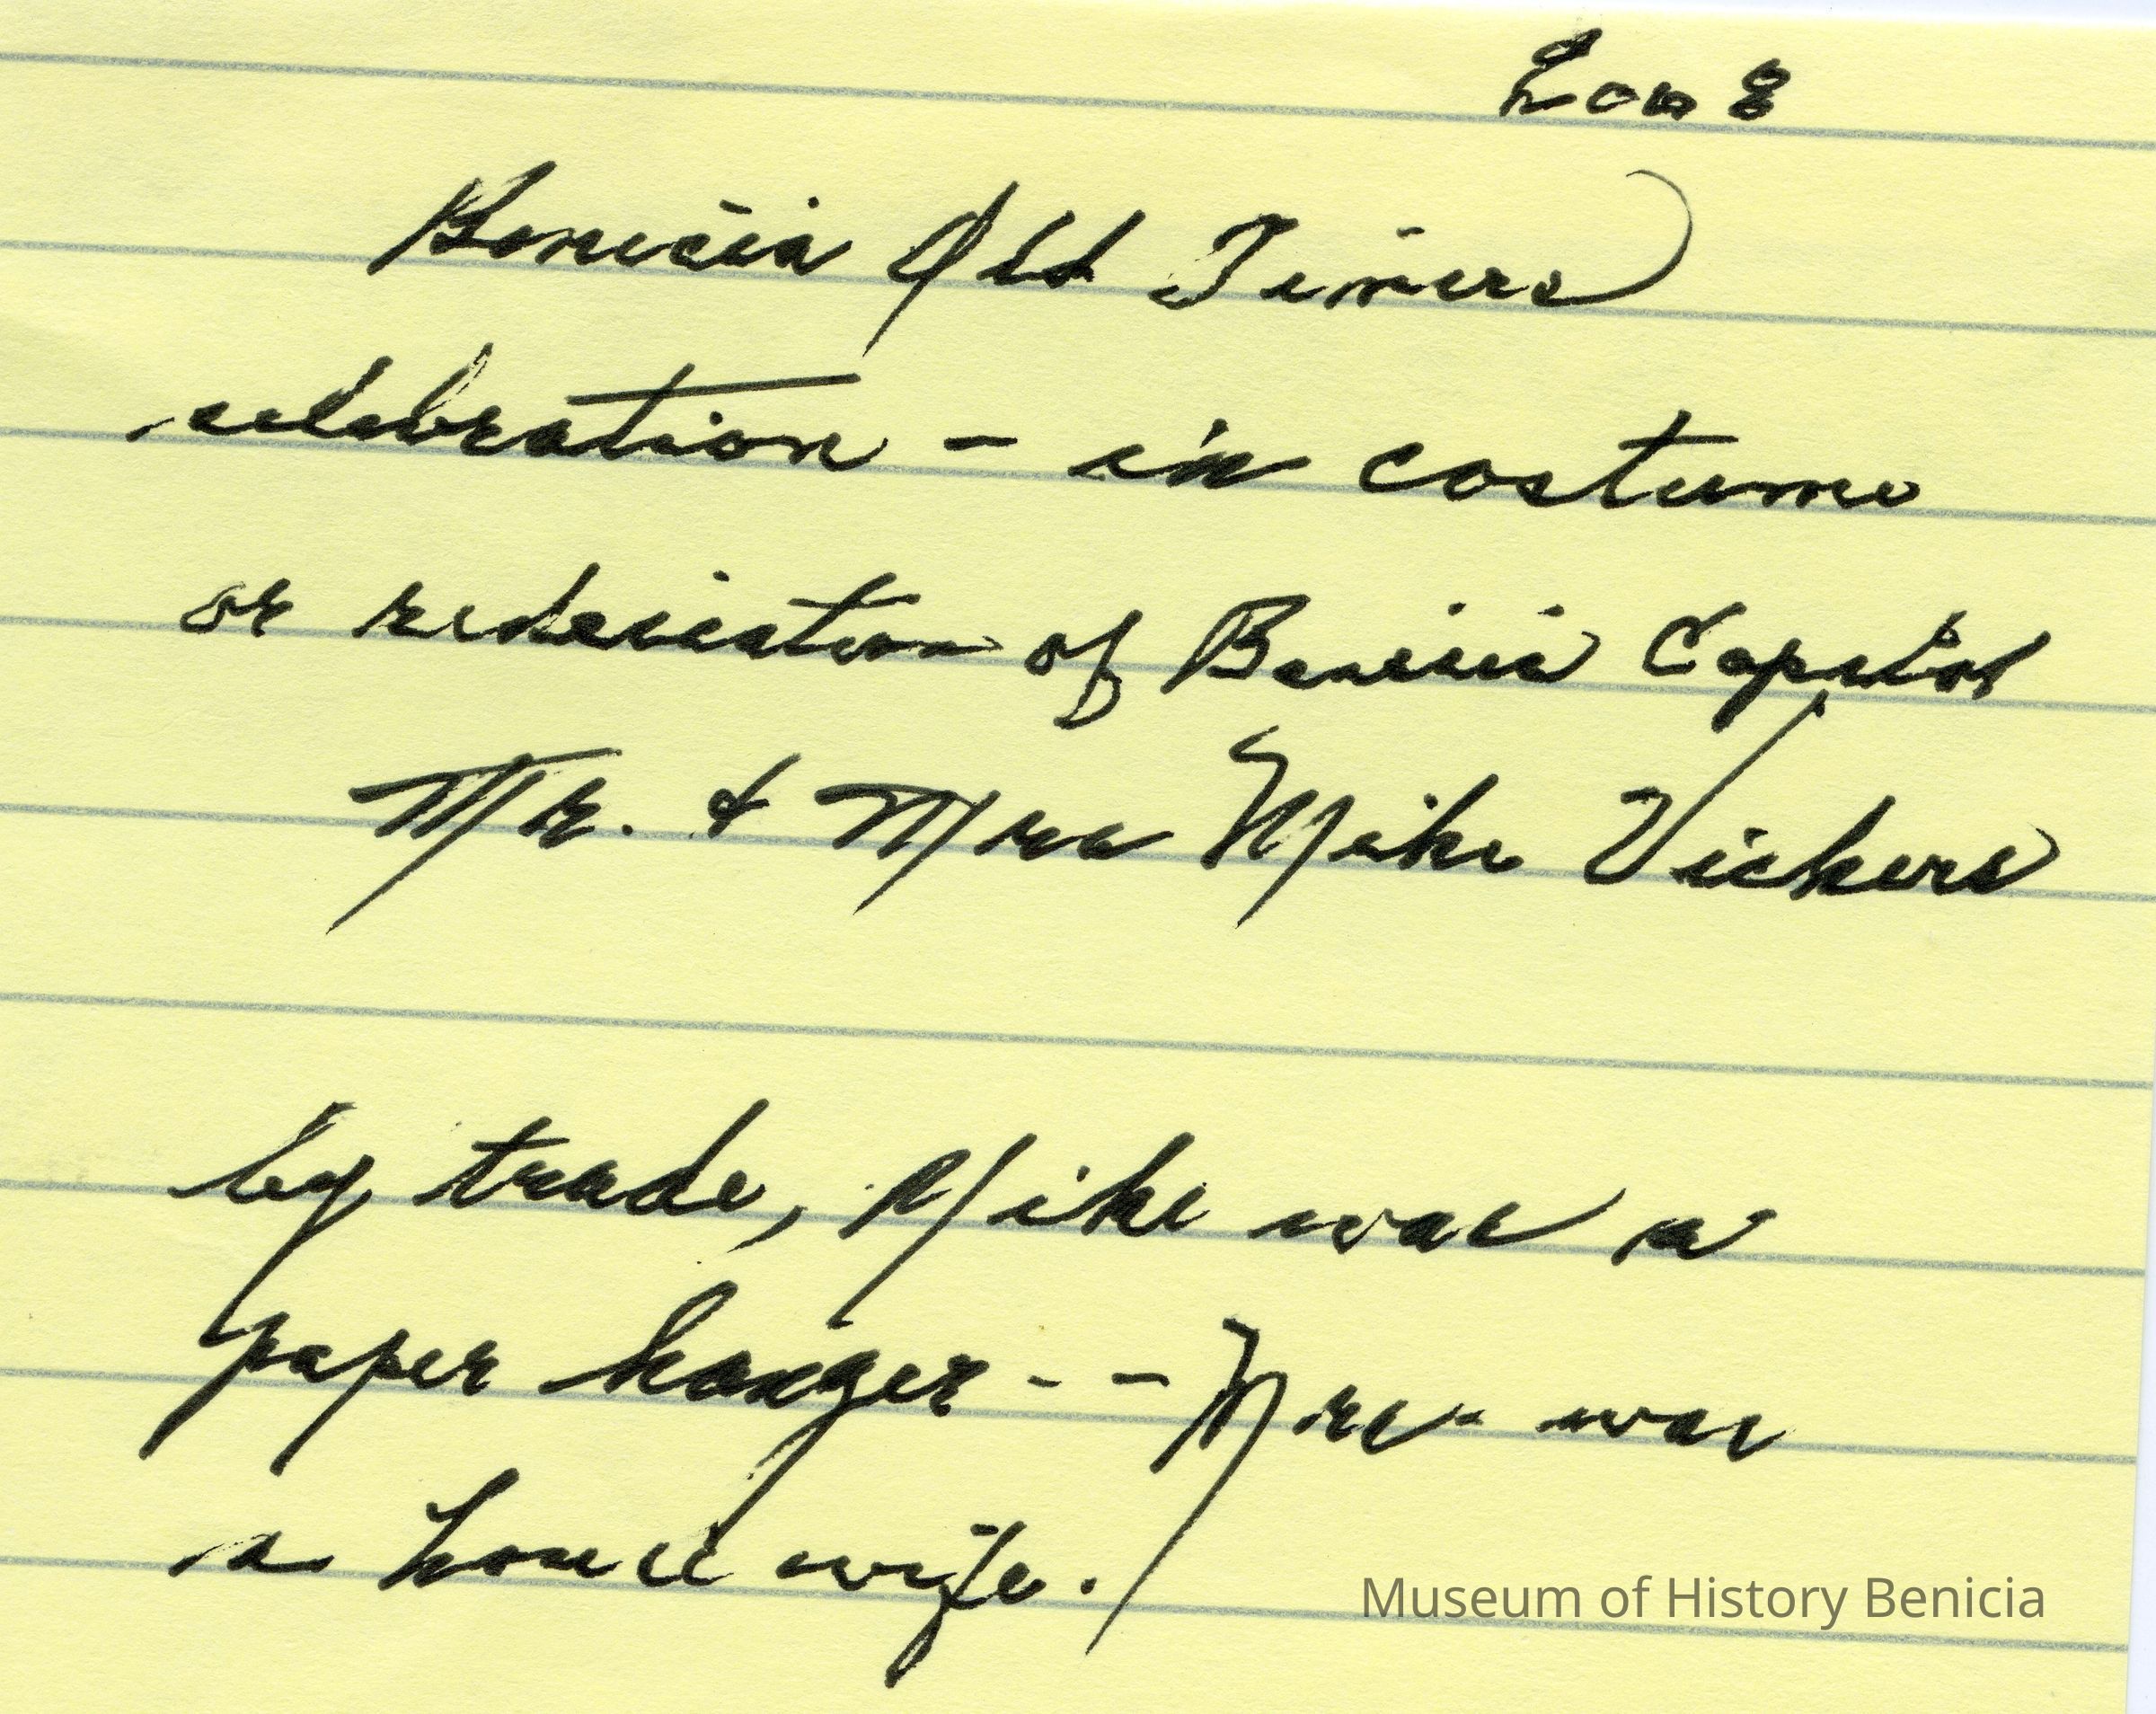 Benicia Old Timers
celebration - in costume
or rededication of Benicia Capitol
Mr. & Mrs Mike Vickers
by trade, Mike was a
paper hanger - - Mrs. was
a house wife.
Museum of History Benicia